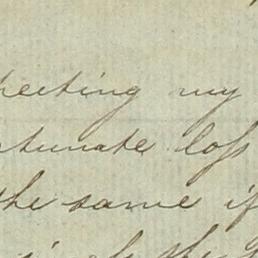 pecting my
rtunate loss
the same if
the